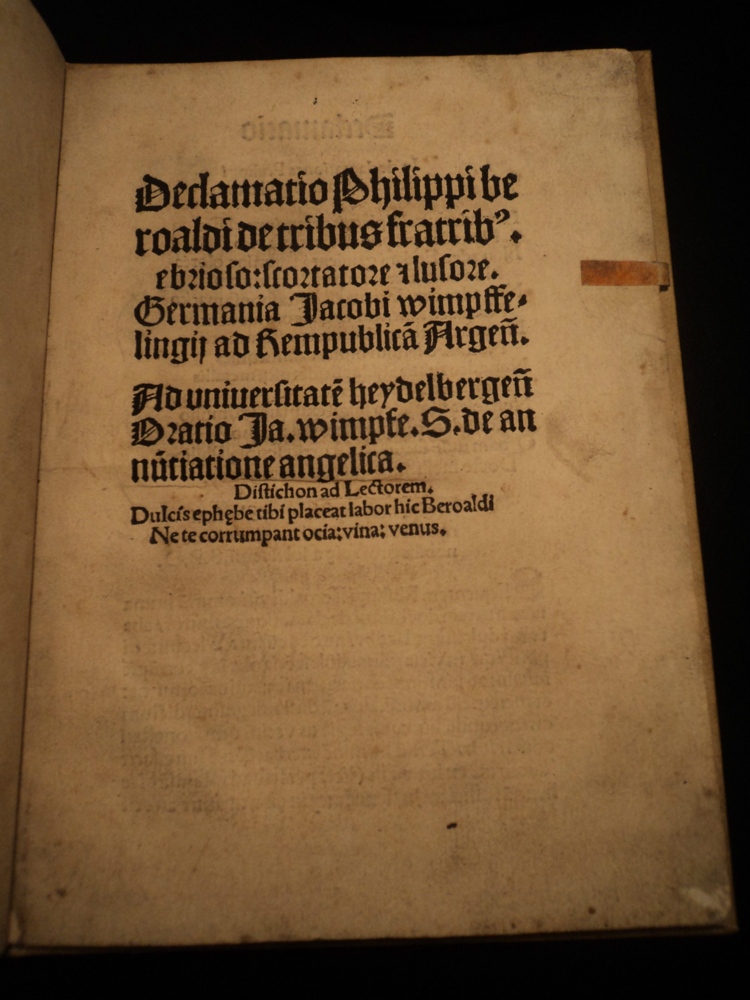 Declamatio Philippi be
roaldi de tribus fratribꝰ.
ebrioso: scortatore ⁊ lusore.
Germania Jacobi wimpffe⸗
lingij ad Rempublicā Argeñ.
Ad uniuersitatē heydelbergeñ
Oratio Ja. wimpfe. S. de an
nūtiatione angelica.
Distichon ad Lectorem.
Dulcis ephębe tibi placeat labor hic Beroaldi
Ne te corrumpant ocia: vina: venus.